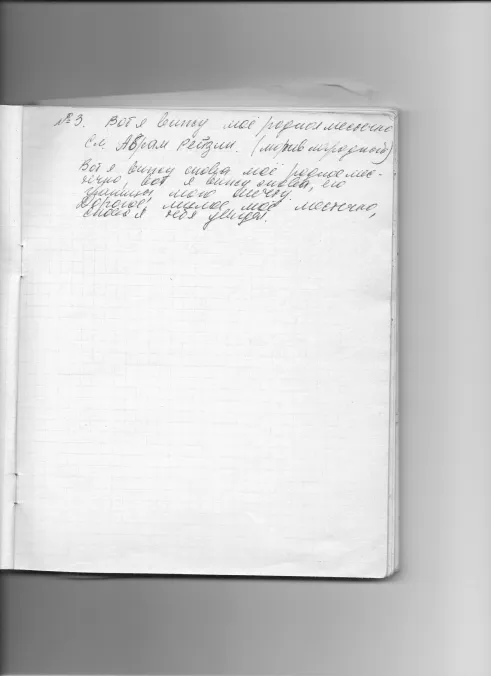 № 3. Вот я вижу моё родное местечко
Сл. Аврам Рейзин. (мотив народный)
Вот я вижу снова моё родное мес-
течко, вот я вижу снова, его
мою мечту.
Дорогое, милое моё местечко,
снова я тебя увидел.